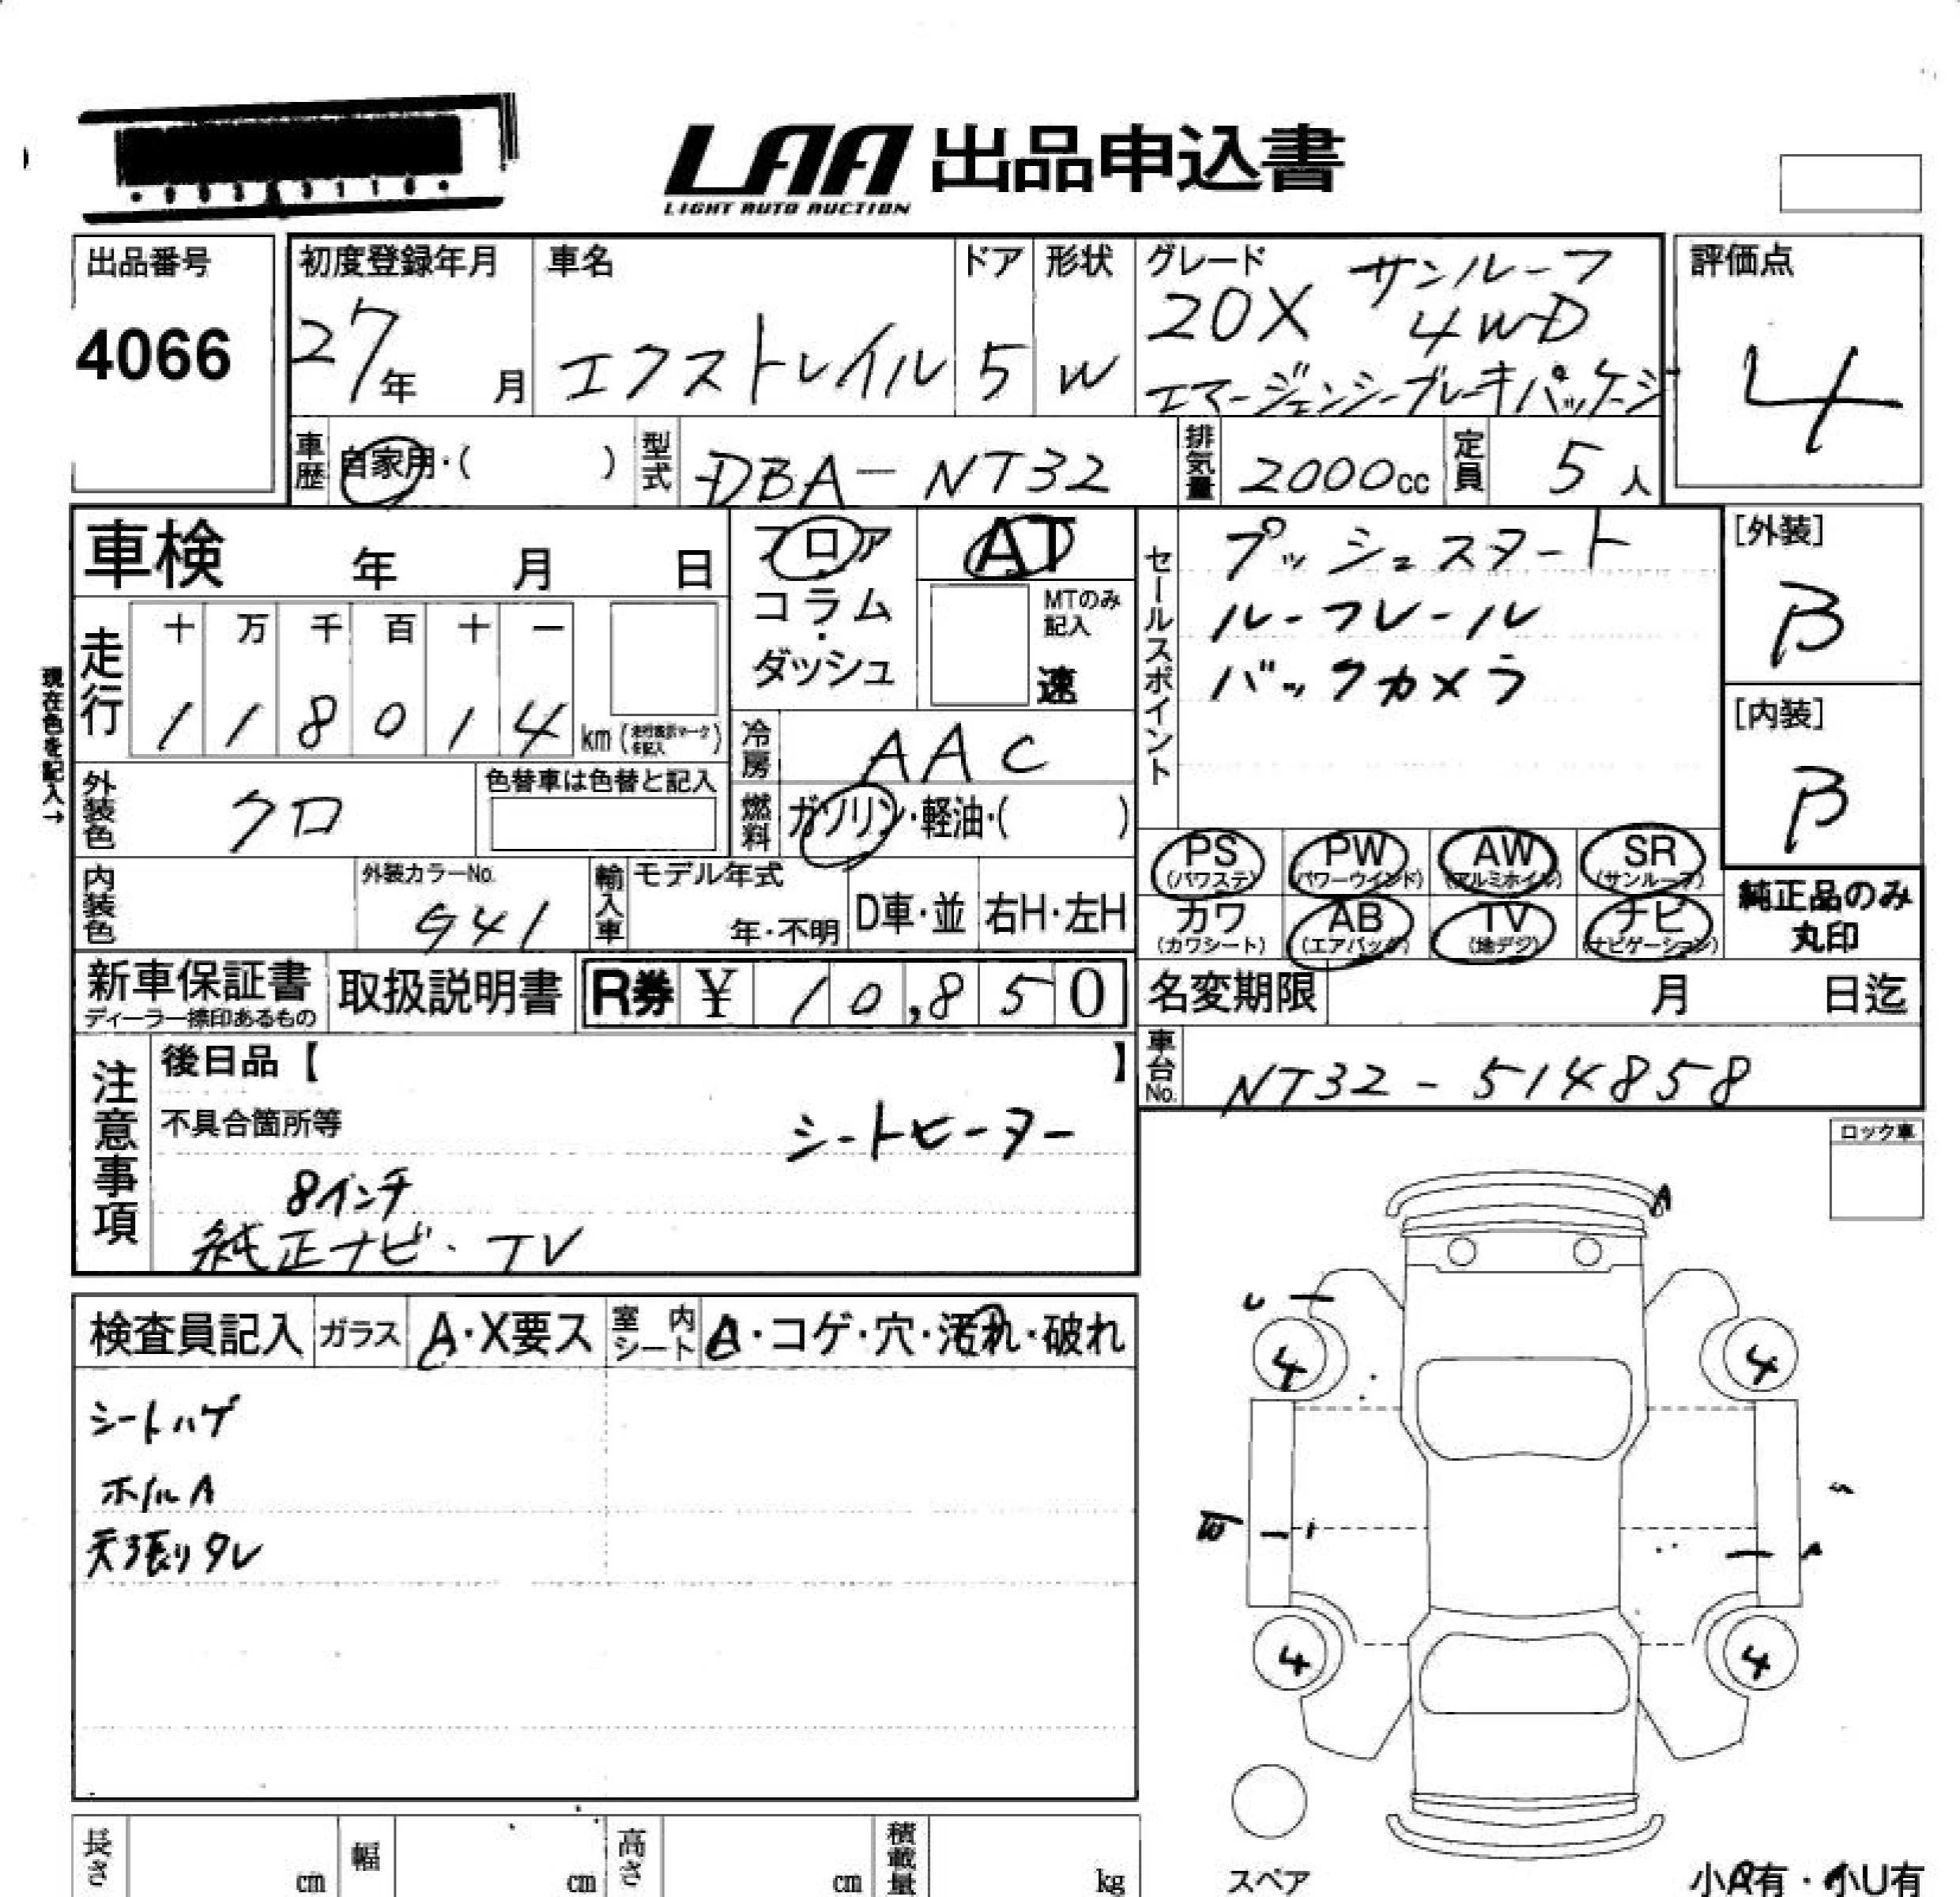 LAA 出品申込書
LIGHT AUTO AUCTION
出品番号
4066
初度登録年月
27年 月
車名
エクストレイル
ドア
5
形状
W
グレード
サンルーフ
20X 4WD
エマージェンシーブレーキパッケージ
評価点
4
車歴 自家用・( )
型式 DBA-NT32
排気量 2000cc
定員 5人
車検 年 月 日
フロア
コラム
ダッシュ
AT
MTのみ
記入
速
セールスポイント
プッシュスタート
ルーフレール
バックカメラ
[外装]
B
[内装]
B
現在色を記入→
走行
十 万 千 百 十 一
1 1 8 0 1 4 km
冷房 AAC
外装色 クロ
色替車は色替と記入
燃料 ガソリン・軽油・( )
PS PW AW SR
(パワステ) (パワーウインド) (アルミホイル) (サンルーフ)
カワ AB TV ナビ
(カワシート) (エアバッグ) (地デジ) (ナビゲーション)
純正品のみ
丸印
内装色
外装カラーNo.
G41
輸入車
モデル年式
年・不明
D車・並
右H・左H
新車保証書
ディーラー捺印あるもの
取扱説明書
R券 ¥ 10,850
名変期限 月 日迄
車台No. NT32-514858
注意事項
後日品【 】
不具合箇所等
シートヒーター
8インチ
純正ナビ・TV
ロック車
検査員記入
ガラス
A・X要ス
室内シート
A・コゲ・穴・汚れ・破れ
シートハゲ
ホイルA
天張りタレ
A
U
4 4
A
4 4
スペア
小A有・小U有
長さ cm
幅 cm
高さ cm
積載量 kg